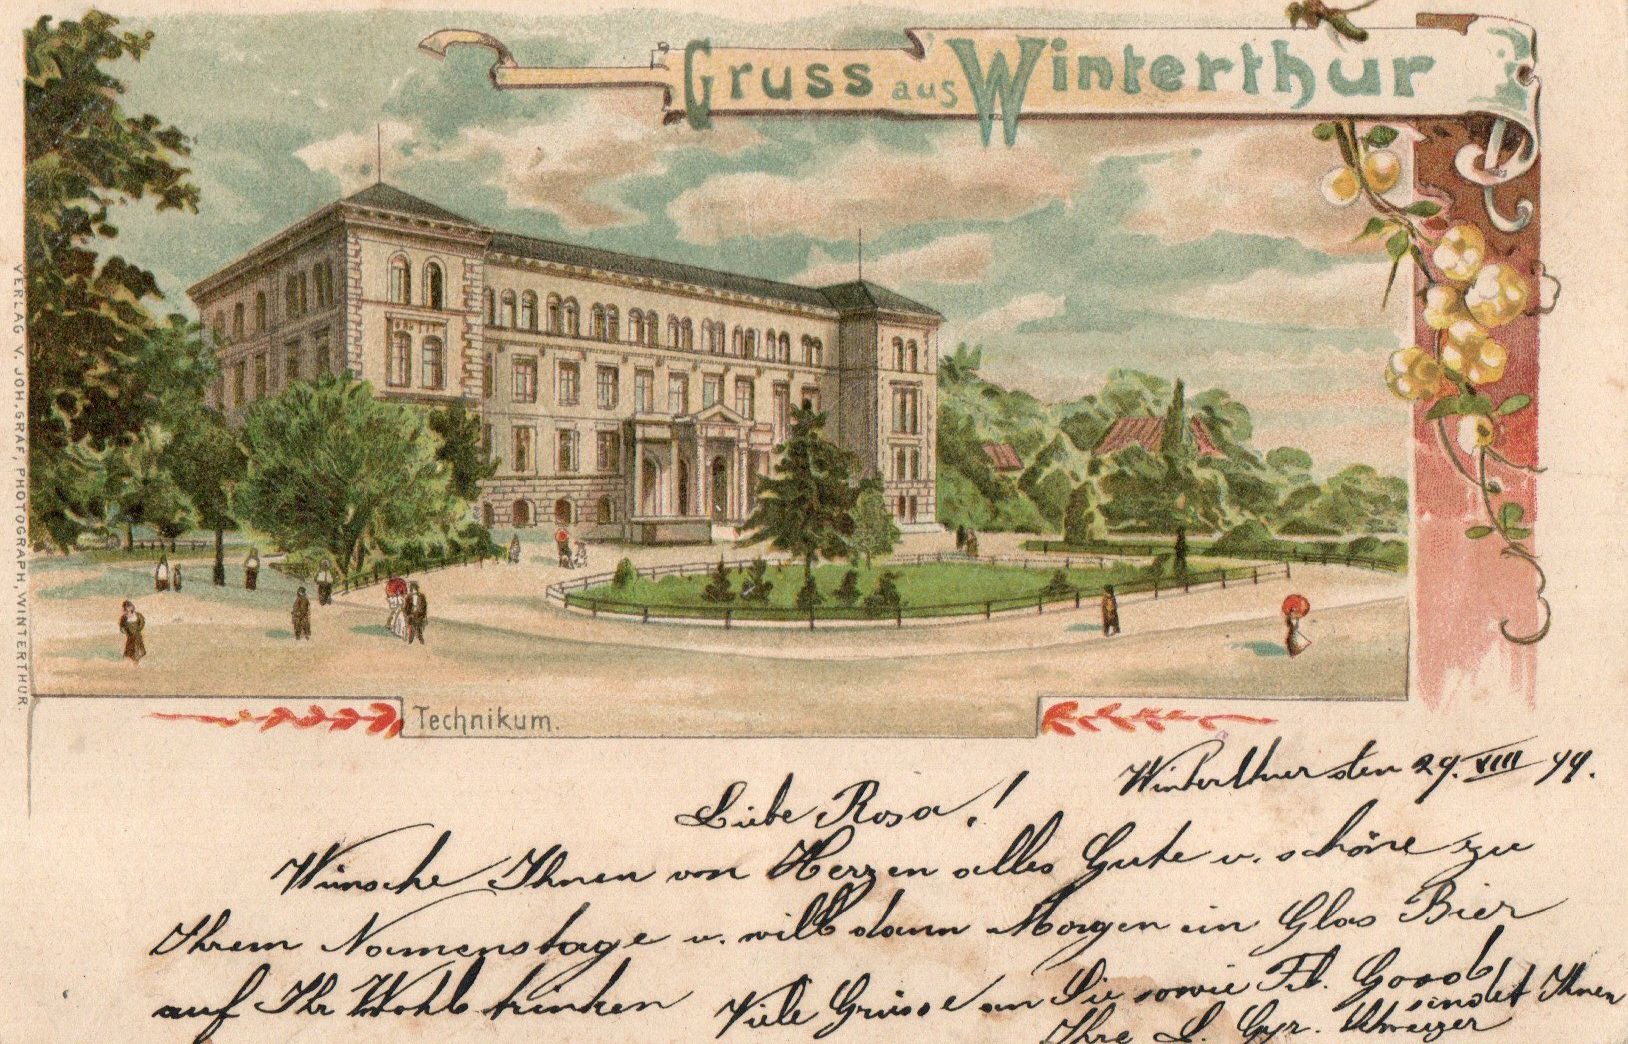 Gruss aus Winterthur
VERLAG V. JOH. GRAF, PHOTOGRAPH, WINTERTHUR
Technikum.
Winterthur den 29. VIII 99.
Liebe Rosa!
Wünsche Ihnen von Herzen alles Gute u. schöne zu
Ihrem Namenstage u. will dann Morgen ein Glas Bier
auf Ihr Wohl trinken Viele Grüsse an Sie sowie Frl.
sendet Ihnen
Ihre L.